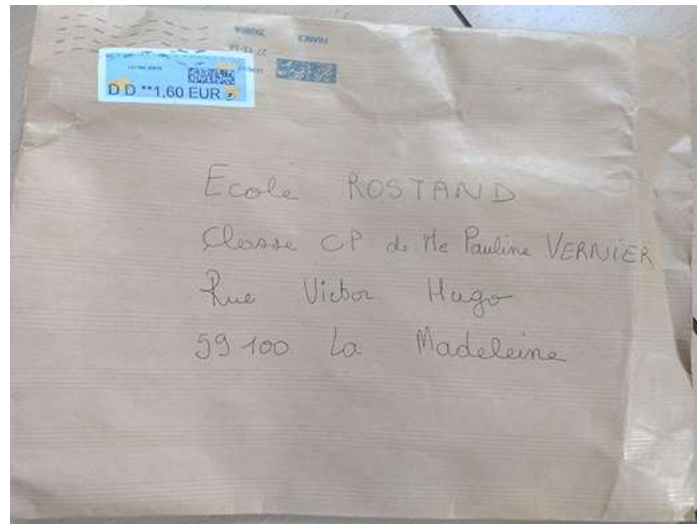 FRANCE
LETTRE VERTE
D D **1,60 EUR
Ecole ROSTAND
Classe CP de Me Pauline VERNIER
Rue Victor Hugo
59100 La Madeleine